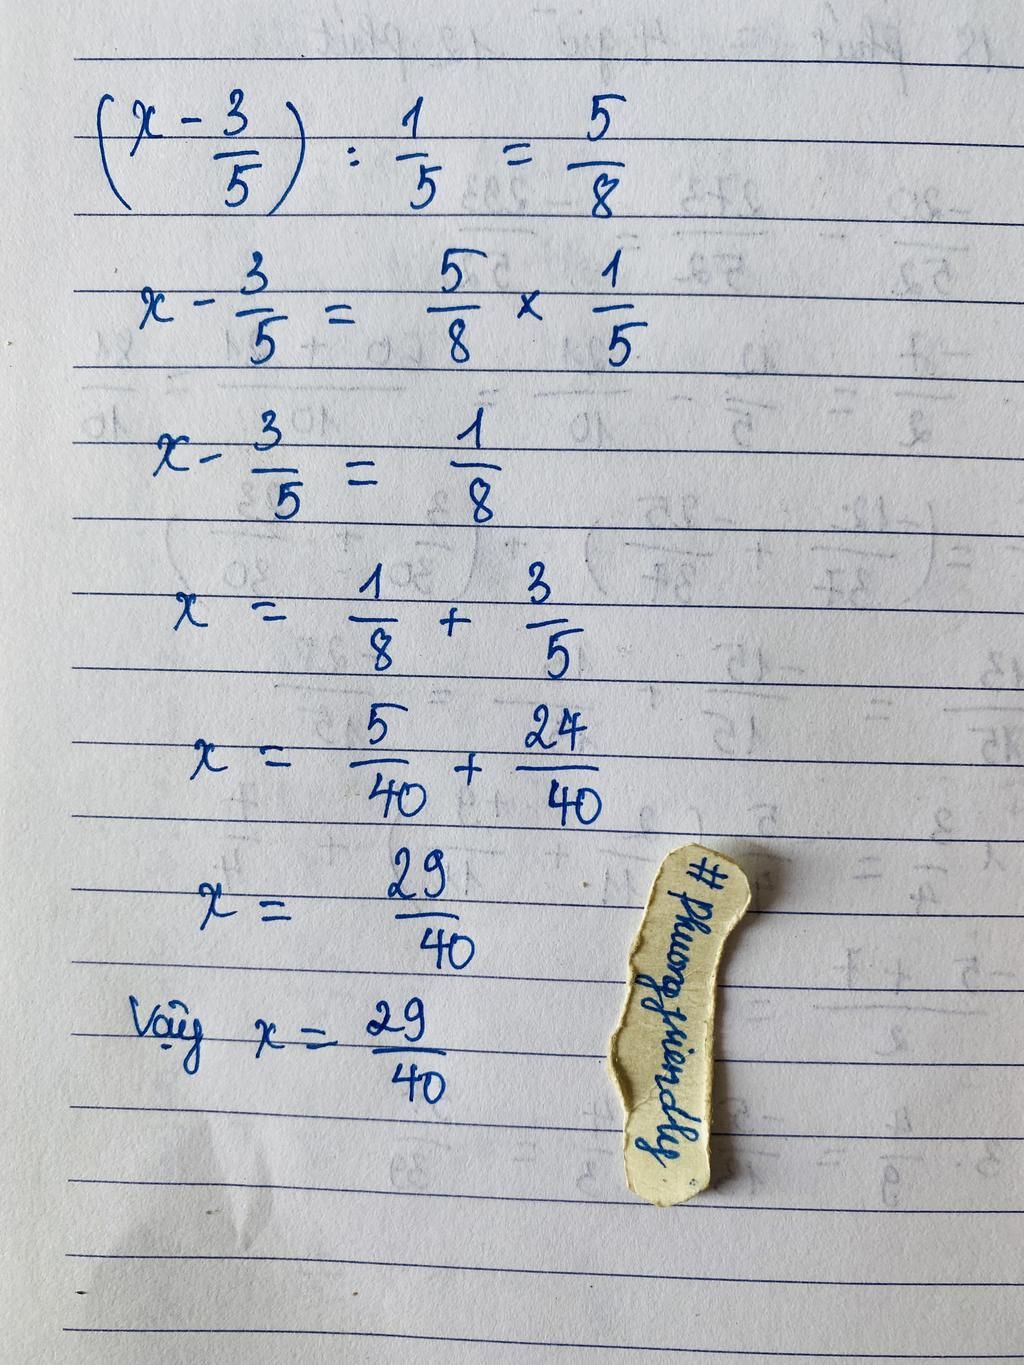 (x - 3/5) : 1/5 = 5/8
x - 3/5 = 5/8 × 1/5
x - 3/5 = 1/8
x = 1/8 + 3/5
x = 5/40 + 24/40
x = 29/40
Vậy x = 29/40
#Phuongfriendly